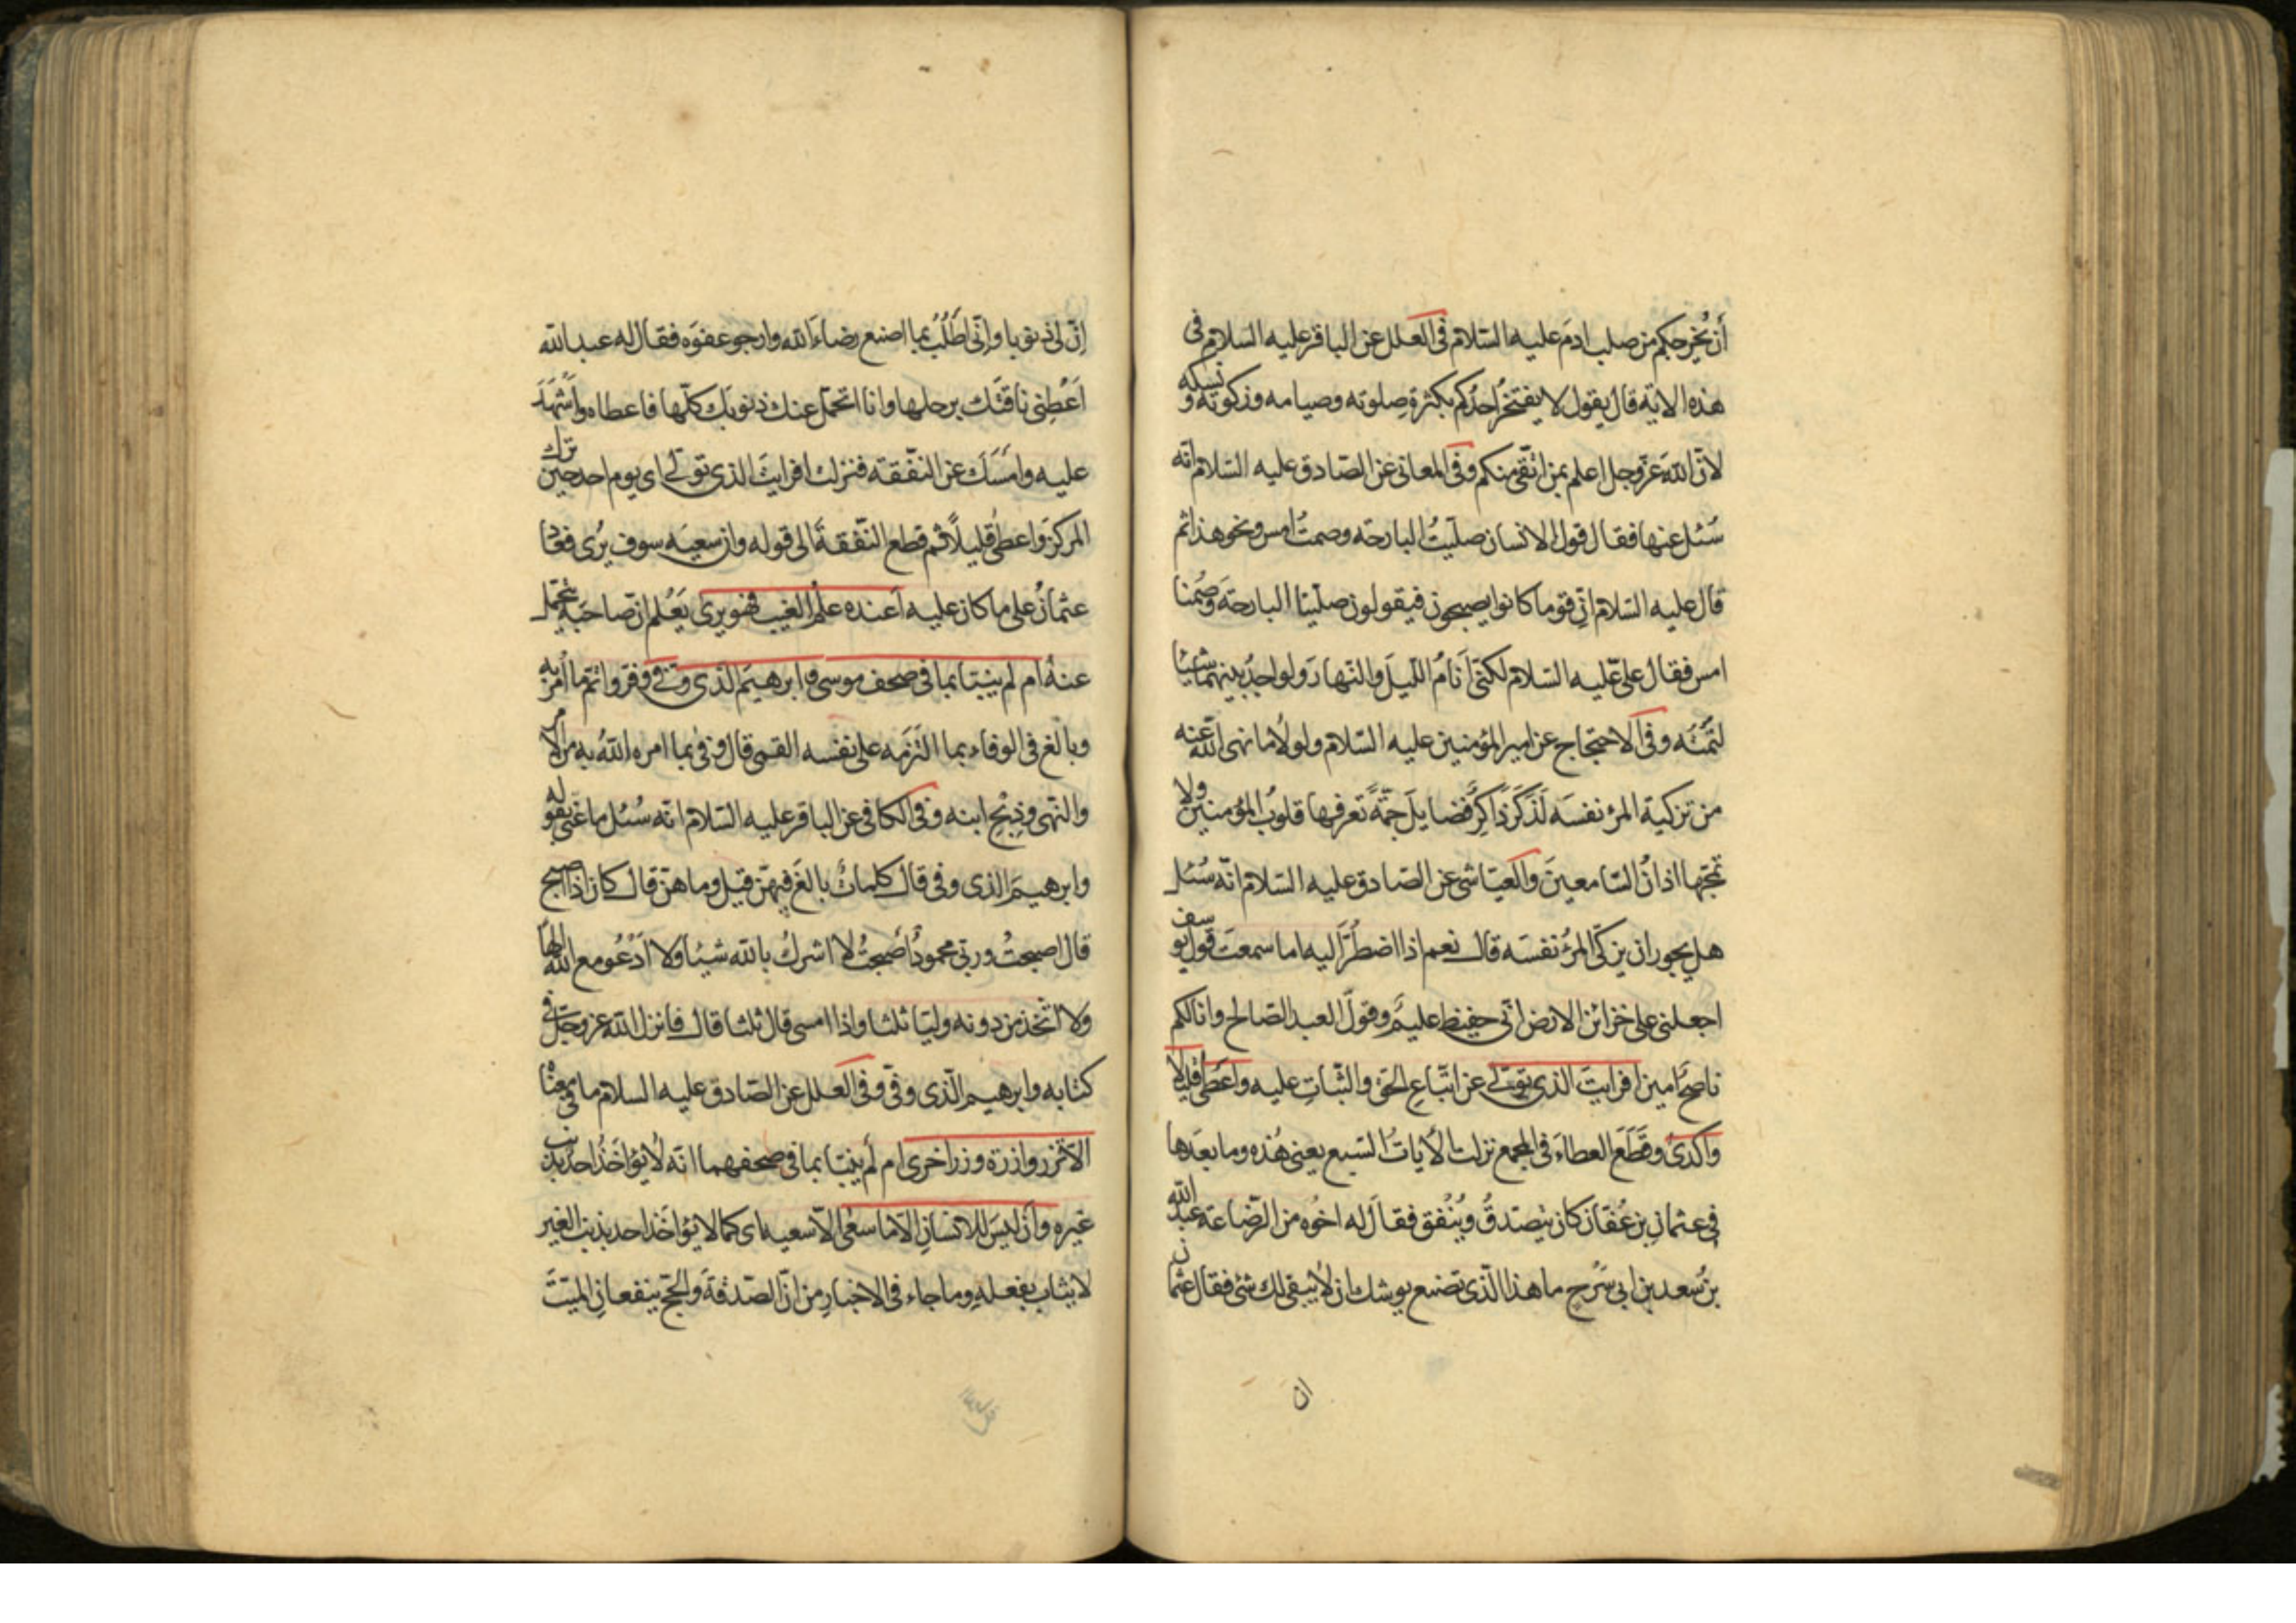 أن يُخرجكم من صلب ادمَ عليه السّلام فى العلل عن الباقر عليه السّلام فى
هذه الاية قال يقول لا يفتخرُ احدُكم بكثرة صلوته وصيامه وزكوته ونسكه
لانّ اللهَ عزّوجل اعلم بمن اتّقى منكم وفى المعانى عن الصّادق عليه السّلام انّه
سُئل عنها فقال قول الانسان صلّيتُ البارحة وصمتُ امس ونحو هذا ثم
قال عليه السّلام انّ قوما كانوا يصبحون فيقولون صلّينا البارحةَ وصُمنا
امس فقال علىّ عليه السّلام لكنّى أنامُ اللّيلَ والنّهارَ ولو اجدُ بينهما شيئا
لنمتُه وفى الاحتجاج عن امير المؤمنين عليه السّلام ولولا ما نهى الله عنه
من تزكية المرء نفسَه لَذَكَرَ ذاكِرٌ فضايلَ جمّةً تعرفها قلوبُ المؤمنين ولا
تمجّها اذانُ السّامعينَ والعيّاشى عن الصّادق عليه السّلام انّه سُئل
هل يجوز ان يزكّى المرءُ نفسَه قال نعم اذا اضطُرَّ اليه اما سمعتَ قول يوسف
اجعلنى على خزائن الارض انّى حفيظ عليمٌ وقولَ العبد الصّالح وانا لكم
ناصحٌ امين افرايتَ الذى تولّى عن اتّباعِ الحقّ والثّباتِ عليه واعطَى قليلا
واكدَى وقَطَعَ العطاءَ فى المجمع نزلت الأيات السّبع يعنى هُذه وما بعدَها
فى عثمانِ بن عُفّان كان يتصدقُ ويُنْفق فقالَ له اخوُه من الرّضاعة عبد الله
بن سُعد بن ابى سَرْحٍ ما هذا الّذى تصنع يوشك ان لا يبقى لك شئ فقال عثمان
ان
انّ لى ذنوبا وإنّى اطْلُبُ بما اصنع رضاءَ الله وارجو عفوَه فقال له عبد الله
اَعْطِنى ناقتَك برحلها وانا اتحمّل عنك ذنوبَك كلّها فاعطاه واَشْهَدَ
عليه وامسَكَ عن النّفقة فنزلت افرايتَ الذى تولّى اى يوم احد حين ترك
المركزَ واعطى قليلاً ثم قطع النّفقةَ الى قوله وان سعيَه سوف يُرى فعاد
عثمانُ على ما كان عليه أعنده علمُ الغيب فهو يرى يَعْلم انّ صاحبَه يتحمّل
عنهُ ام لم ينبّا بما فى صحف موسى وابرهيمَ الذى وفّى وفّر واتمّ ما اُمرَ به
وبالَغ فى الوفاء بما التَزمَه على نفسه القمى قال وفى بما امره اللهُ به من الأمر
والنّهى وذِبْحِ ابنه وفى الكافى عن الباقر عليه السّلام انّه سُئل ما عنى بقوله
وابرهيمَ الذى وفى قال كلماتٌ بالغَ فيهنّ قيل وما هنّ قال كان اذا اصبح
قال اصبحتُ وربّى محمودٌ أصبحتُ لا اشركُ بالله شيئا ولا ادْعُو مع الله الهاً
ولا اتّخذ من دونه وليّا ثلثا واذا امسى قال ثلثا قال فانزل الله عزوجلّ فى
كتابه وابرهيم الّذى وفّى وفى العلل عن الصّادق عليه السلام ما فى معناه
الّا تزر وازرة وزر اخرى ام لم ينبّا بما فى صحفهما انّه لا يُؤاخَذُ احدٌ بذنب
غيره وأن ليسَ للانسانِ الّا ما سعَى الّا سعيه اى كما لا يؤاخَذ احد بذنب الغير
لا يثاب بفعله وما جاء فى الاخبارِ من انّ الصّدقةَ والحجّ ينفعانِ الميّتَ